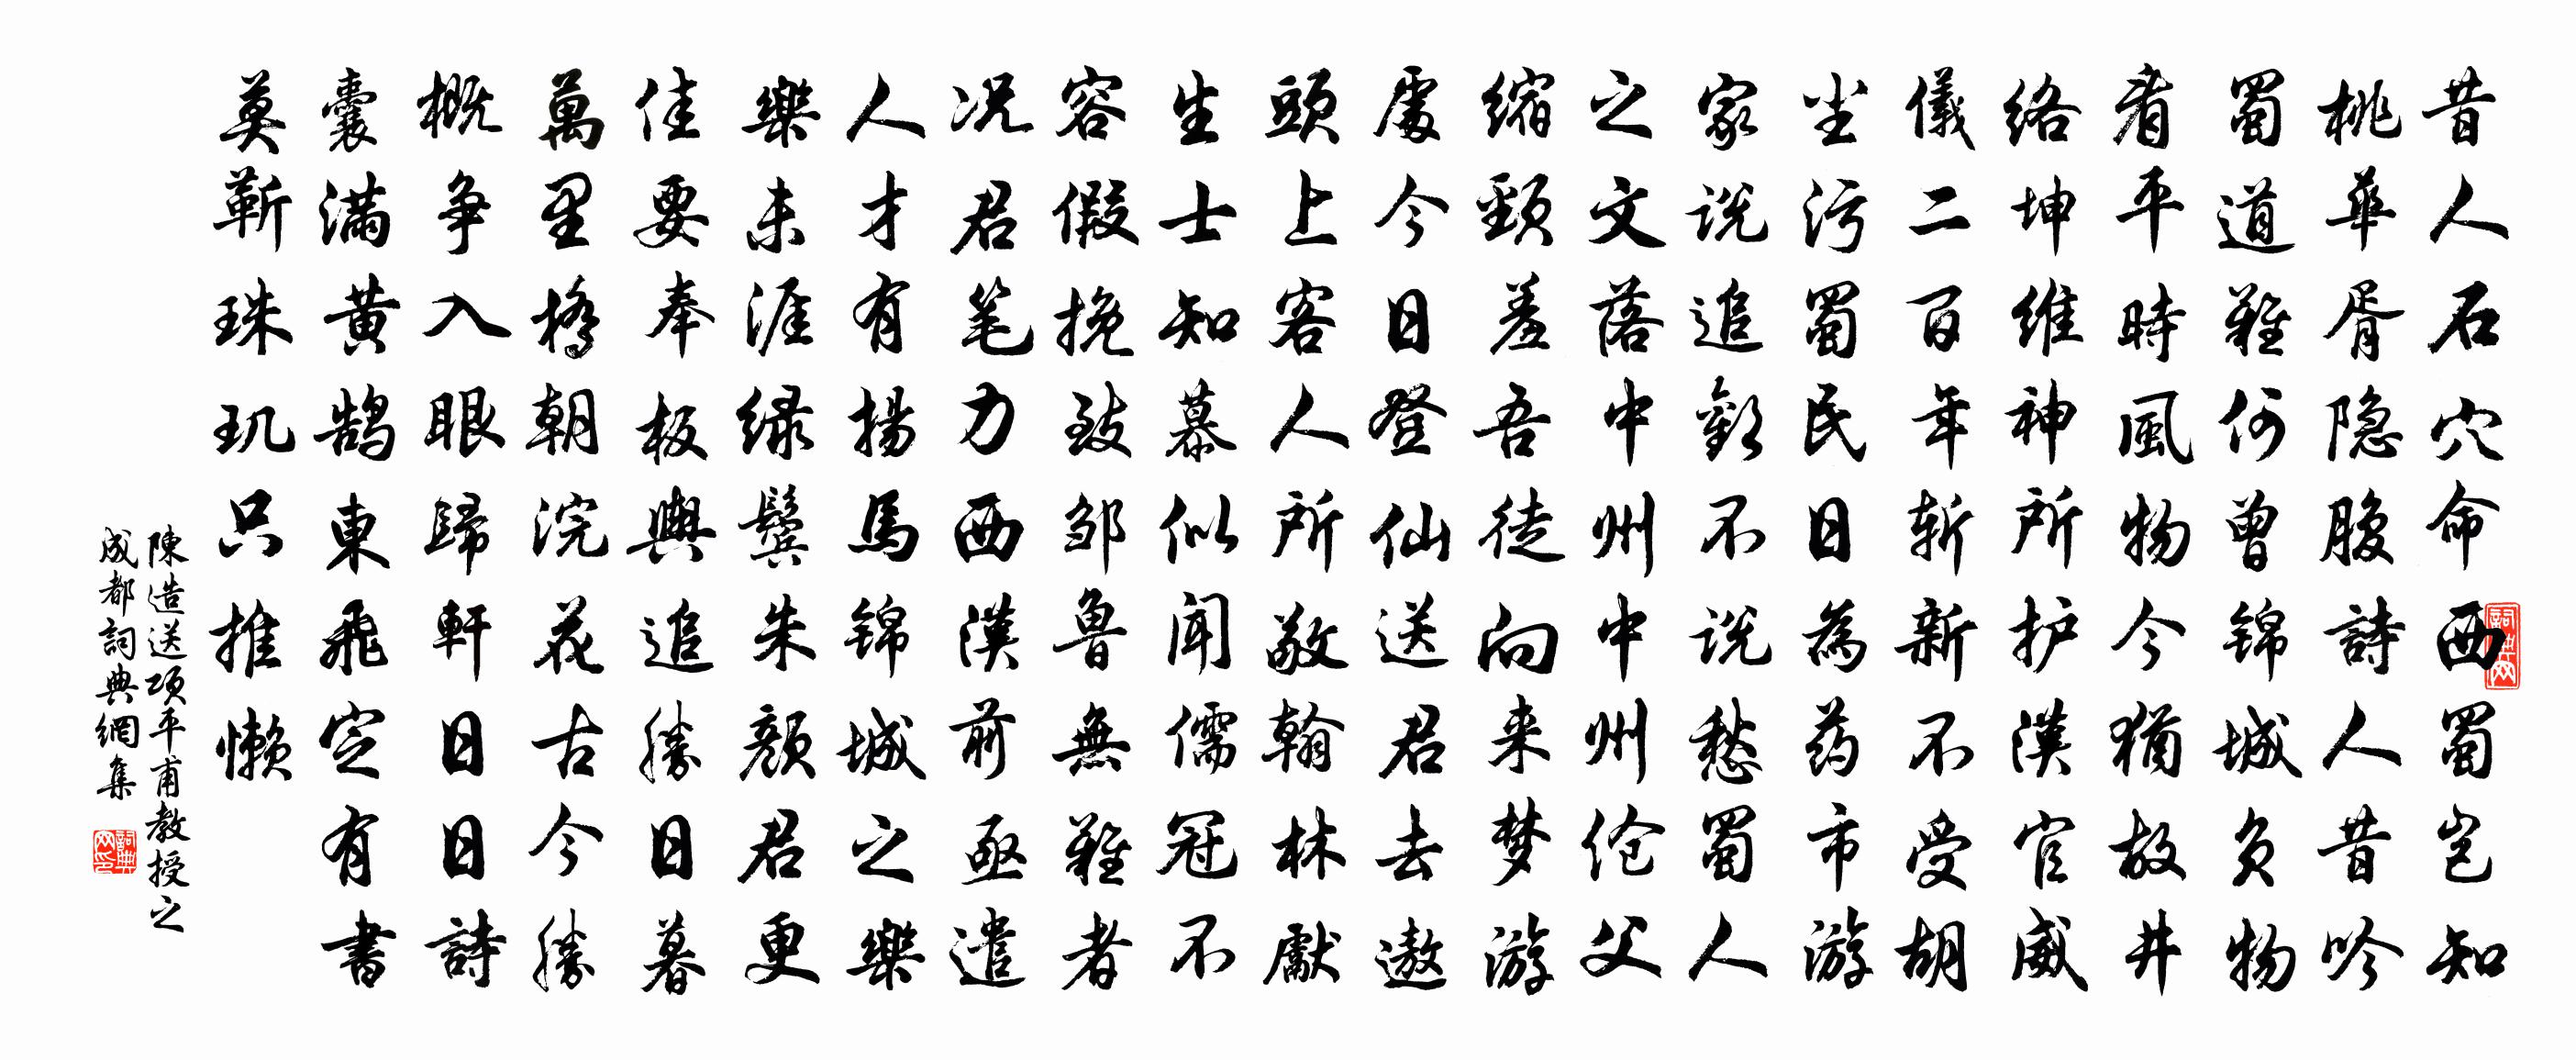 昔人石穴命西蜀岂知
桃華胥隐腹詩人昔吟
蜀道難何曾锦城負物
看平時風物今猶故井
络坤維神所护漢官威
儀二百年斩新不受胡
尘污蜀民日為药市游
家说追歡不说愁蜀人
之文落中州中州伧父
缩頸羞吾徒向来梦游
處今日登仙送君去遨
頭上客人所敬翰林獻
生士知慕似闻儒冠不
容假挽致邹魯無難者
况君笔力西漢前亟遣
人才有揚馬锦城之樂
樂未涯绿鬓朱颜君更
佳要奉板輿追勝日暮
萬里橋朝浣花古今勝
概争入眼歸軒日日詩
囊满黄鹄東飛定有書
莫靳珠玑只推懒
陳造送项平甫教授之
成都詞典網集
詞典网
詞典网印